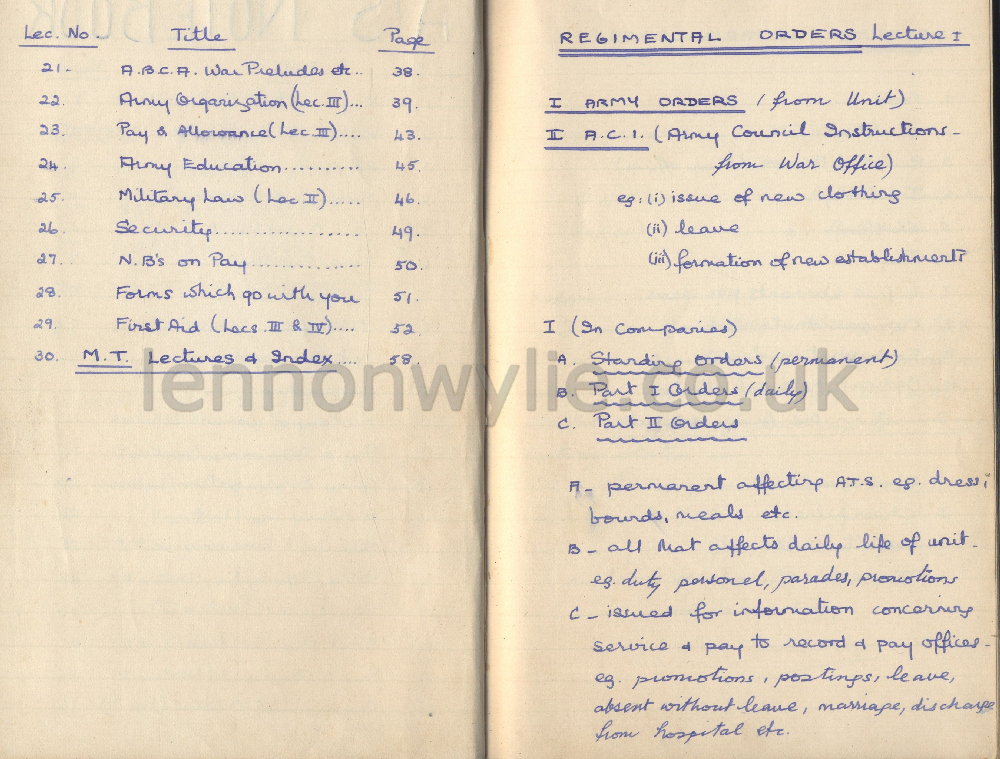 Lec. No. Title Page
21. A.B.C.A. War Preludes etc... 38.
22. Army Organization (Lec. III)... 39.
23. Pay & Allowance (Lec. III).... 43.
24. Army Education.......... 45.
25. Military Law (Lec II)..... 46.
26. Security.................. 49.
27. N.B's on Pay.............. 50.
28. Forms which go with you 51.
29. First Aid (Lecs. III & IV).... 52.
30. M.T. Lectures & Index.... 58.
REGIMENTAL ORDERS Lecture I
I ARMY ORDERS (from Unit)
II A.C.I. (Army Council Instructions -
from War Office)
eg: (i) issue of new clothing
(ii) leave
(iii) formation of new establishments
I (In Companies)
A. Standing Orders (permanent)
B. Part I Orders (daily)
C. Part II Orders
A - permanent affecting A.T.S. eg. dress,
bounds, meals etc.
B - all that affects daily life of unit -
eg. duty personel, parades, promotions
C - issued for information concerning
service & pay to record & pay offices -
eg. promotions, postings, leave,
absent without leave, marriage, discharge
from hospital etc.
lennonwylie.co.uk